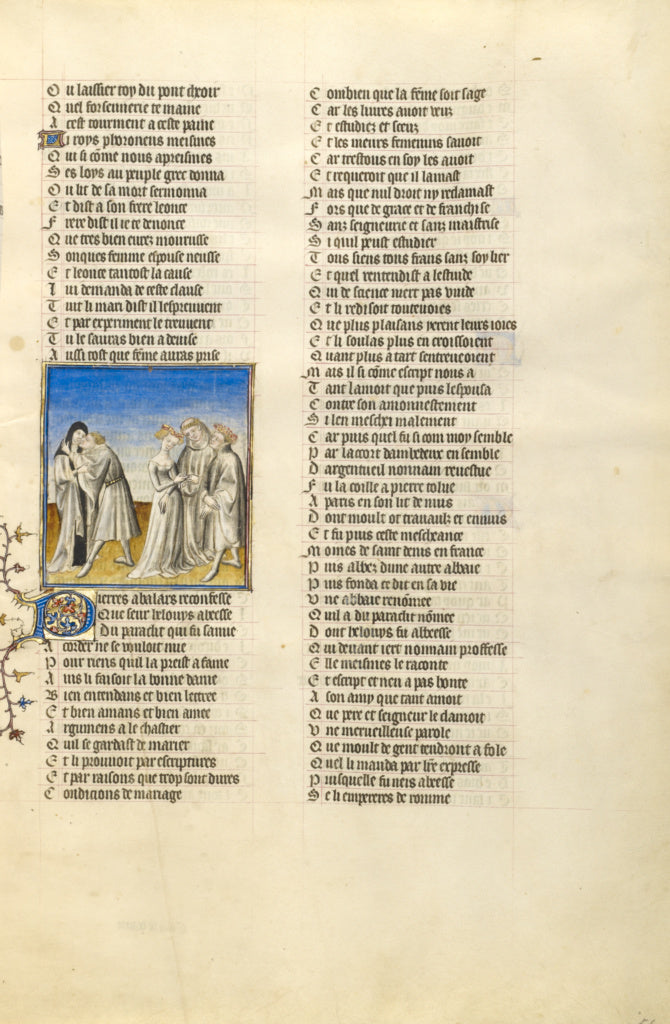 Ou laissier toy du pont cheoir
Quel forsennerie te maine
A cest tourment a ceste paine
Li roys phoroneus meismes
Qui si cõme nous apreismes
Ses loys au peuple grec donna
Ou lit de sa mort sermonna
Et dist a son frere leonce
Frere dist il ie te denonce
Que tres bien eurez mourusse
Sonques femme espouse neusse
Et leonce tantost la cause
Lui demanda de ceste clause
Tuit li mari dist il lespreuuent
Et par experiment le treuuent
Tu le sauras bien a deuise
Aussi tost que fẽme auras prise
Pierres abalars reconfesse
Que seur helouys abeesse
Du paraclit qui fu samie
Acorder ne se vouloit mie
Pour riens quil la preist a fame
Ains li faisoit la bonne dame
Bien entendans et bien lettree
Et bien amans et bien amee
Argumens a le chastier
Quil se gardast de marier
Et li prouuoit par escriptures
Et par raisons que trop sont dures
Condicions de mariage
Combien que la fẽme soit sage
Car les liures auoit veuz
Et estudiez et sceuz
Et les meurs femenins sauoit
Car trestous en soy les auoit
Et requeroit que il lamast
Mais que nul droit ny reclamast
Fors que de grace et de franchise
Sanz seigneurie et sanz maistrise
Si quil peust estudier
Tous siens tous frans sanz soy lier
Et quel rentendist a lestude
Qui de science niert pas vuide
Et li redisoit touteuoies
Que plus plaisans ierent leurs ioies
Et li soulas plus en croissoient
Quant plus a tart sentreueoient
Mais il si cõme escript nous a
Tant lamoit que puis lespousa
Contre son amonnestement
Si len meschei malement
Car puis quel fu si com moy semble
Par lacort dambedeux en semble
Dargentueil nonnain reuestue
Fu la coille a pierre tolue
A paris en son lit de nuis
Dont moult ot trauaulz et ennuis
Et fu puis ceste mescheance
Moines de saint denis en france
Puis abbez dune autre abbaie
Puis fonda ce dit en sa vie
Vne abbaie renõmee
Quil a du paraclit nõmee
Dont helouys fu abbeesse
Qui deuant iert nonnain professe
Elle meismes le raconte
Et escript et nen a pas honte
A son amy que tant amoit
Que pere et seigneur le clamoit
Vne merueilleuse parole
Que moult de gent tendront a fole
Quel li manda par lr̃e expresse
Puis quelle fu neis abeesse
Se li empereres de romme